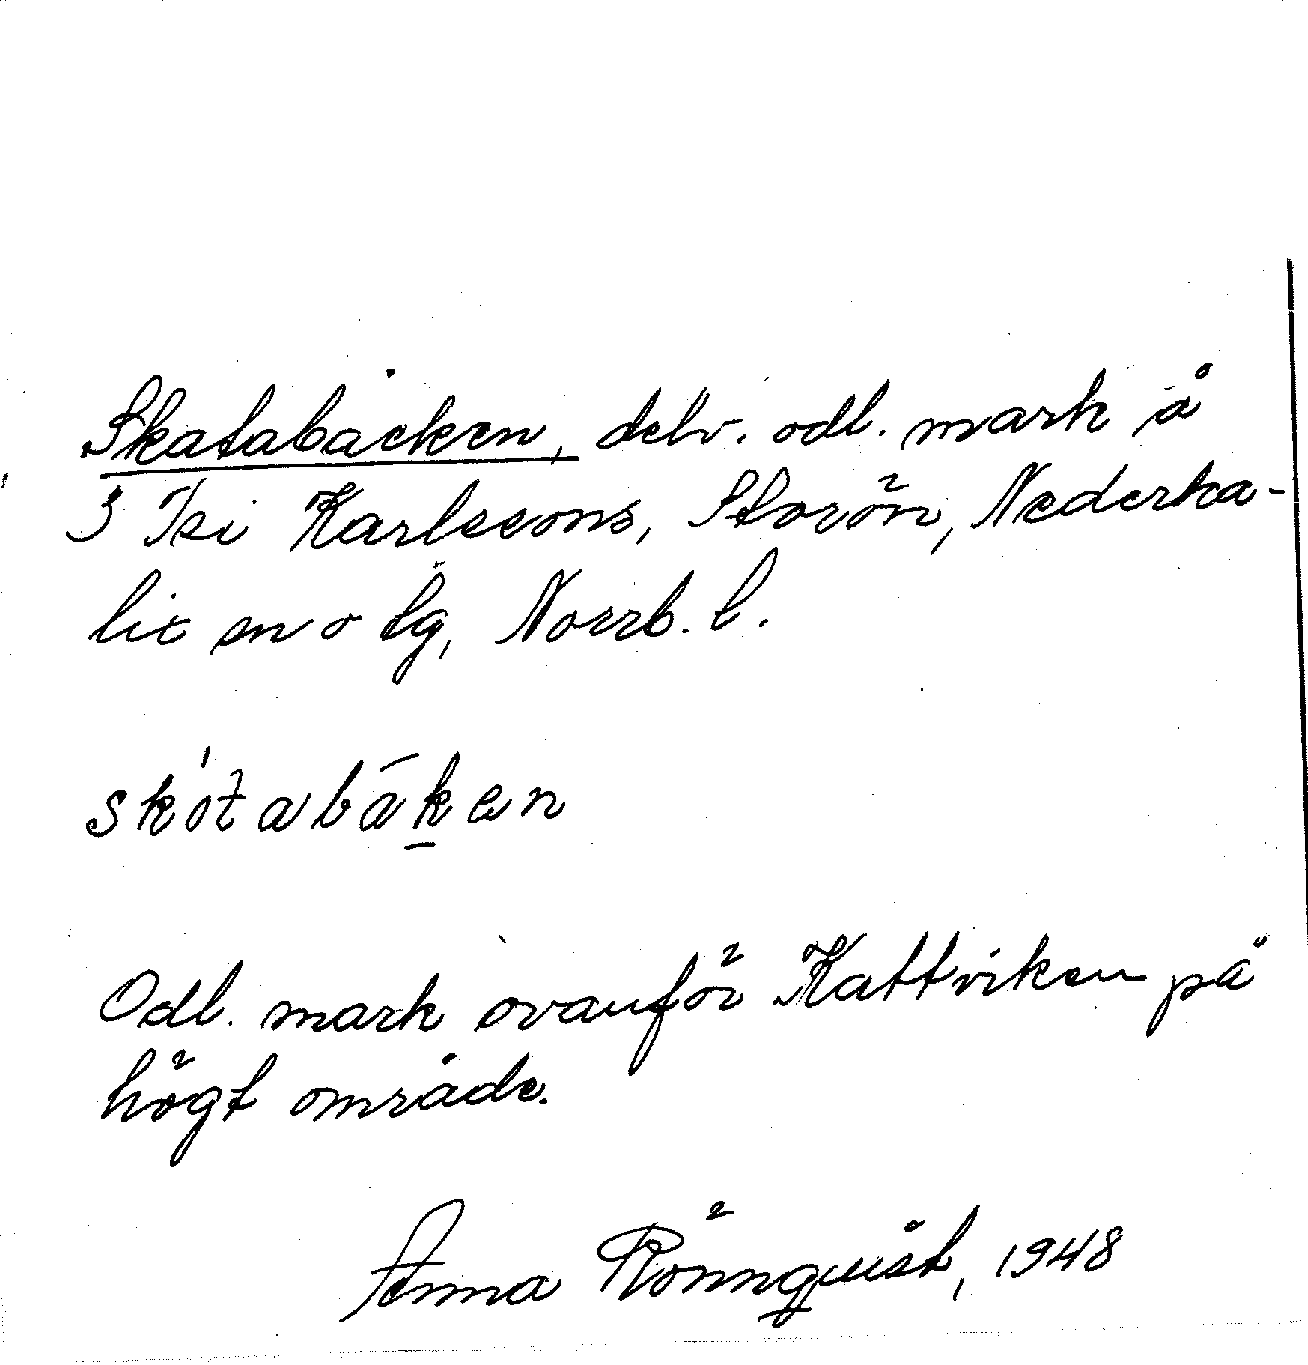 Skatabacken, delv. odl. mark å
3 Isi Karlssons, Storön, Nederka-
lix sn o tg, Norrb. l.
skòtabāken
Odl. mark ovanför Kattviken på
högt område.
Anna Rönnquist, 1948